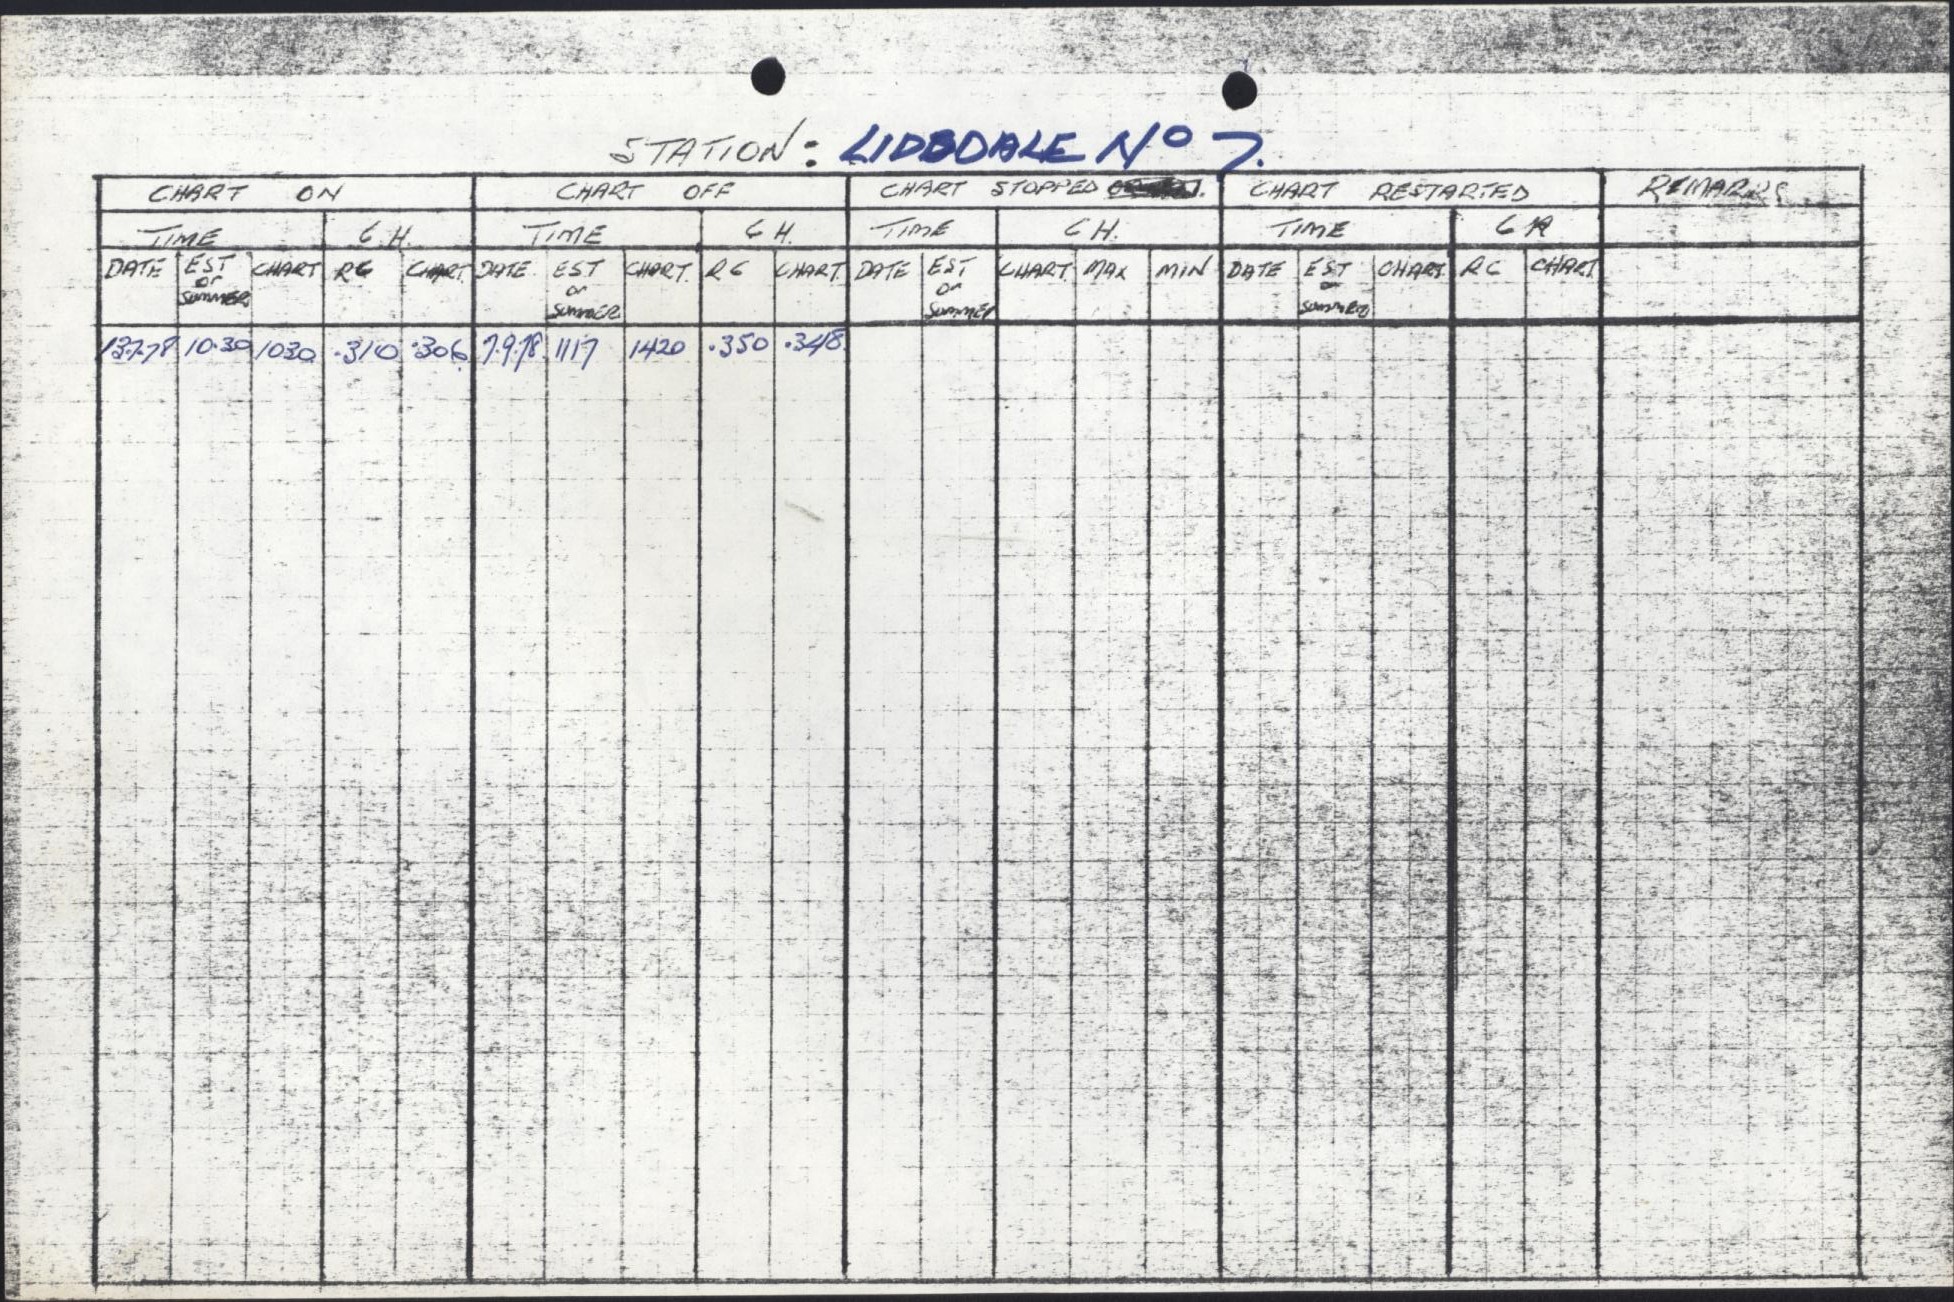 STATION: LIDSDALE No 7.
CHART ON CHART OFF CHART STOPPED CHART RESTARTED REMARKS
TIME G.H. TIME G H. TIME G H. TIME G H
DATE EST or SUMMER CHART RG CHART DATE EST or SUMMER CHART RG CHART DATE EST or SUMMER CHART MAX MIN DATE EST or SUMMER CHART RG CHART
13.7.78 10.30 1030 .310 .306 7.9.78 1117 1420 .350 .348